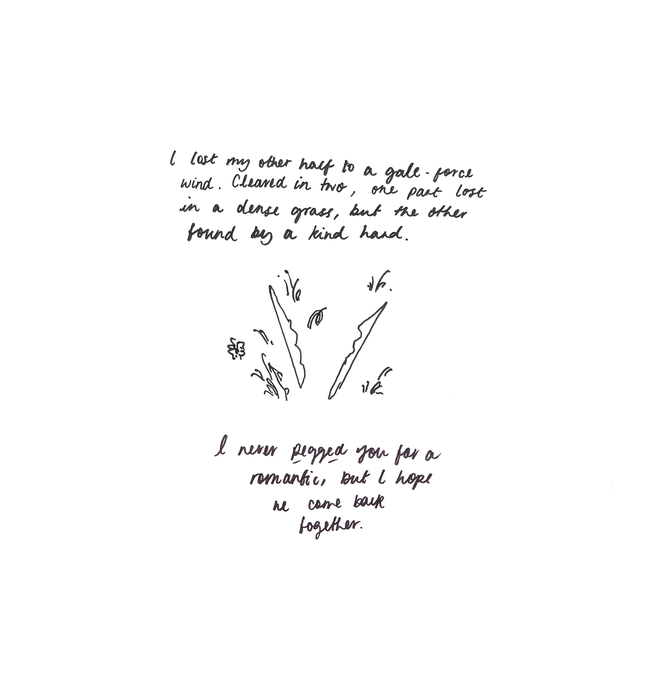 I lost my other half to a gale-force
wind. Cleaved in two, one part lost
in a dense grass, but the other
found by a kind hand.
I never pegged you for a
romantic, but I hope
we come back
together.